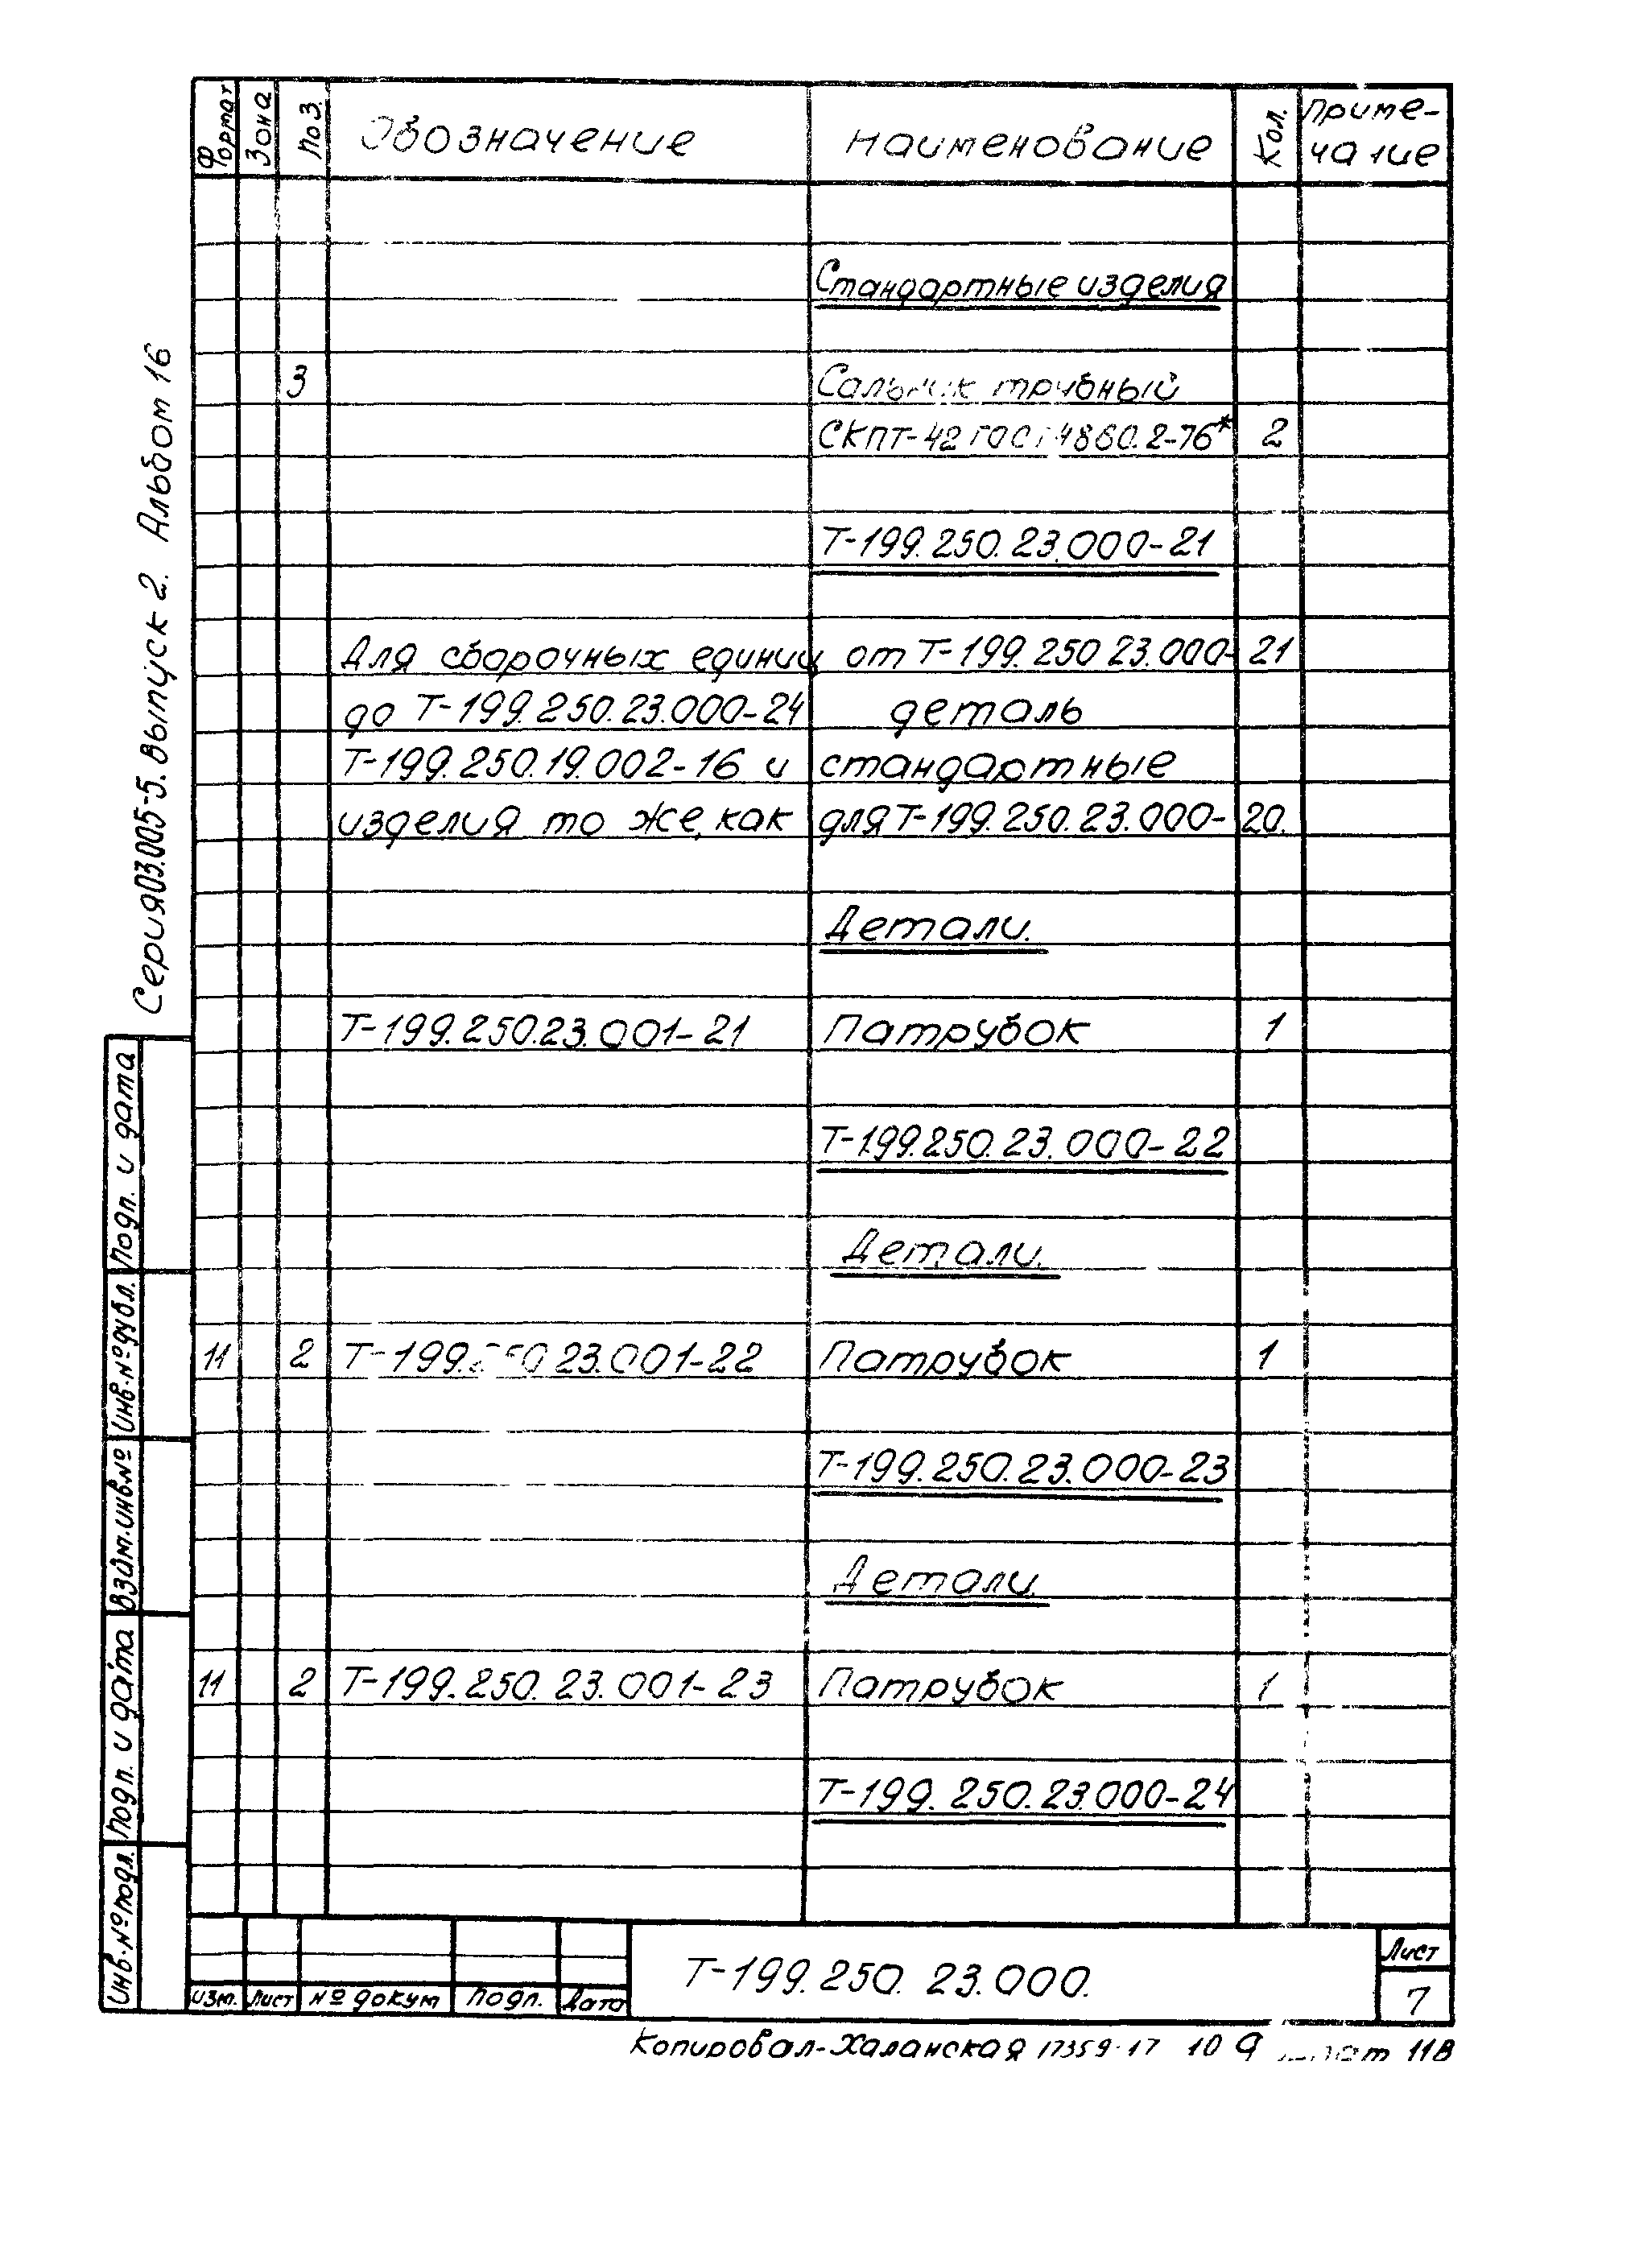 Формат Зона Поз. Обозначение Наименование Кол. Приме-
чание
Стандартные изделия
3 Сальник трубный
СКПТ-42 ГОСТ 4860.2-76* 2
Т-199.250.23.000-21
Для сборочных единиц от Т-199.250 23.000-21
до Т-199.250.23.000-24 деталь
Т-199.250.19.002-16 и стандартные
изделия то же, как для Т-199.250.23.000-20.
Детали.
Т-199.250.23.001-21 Патрубок 1
Т-199.250.23.000-22
Детали.
11 2 Т-199.250 23.001-22 Патрубок 1
Т-199.250.23.000-23
Детали.
11 2 Т-199.250.23.001-23 Патрубок 1
Т-199.250.23.000-24
Серия 03.005-5. Выпуск 2. Альбом 16
Подп. и дата
Инв.№дубл.
Взам.инв.№
Подп. и дата
Инв.№подл.
Изм. Лист № докум Подп. Дата
Т-199.250.23.000.
Лист
7
Копировал-Халанская 17359-17 10 11В